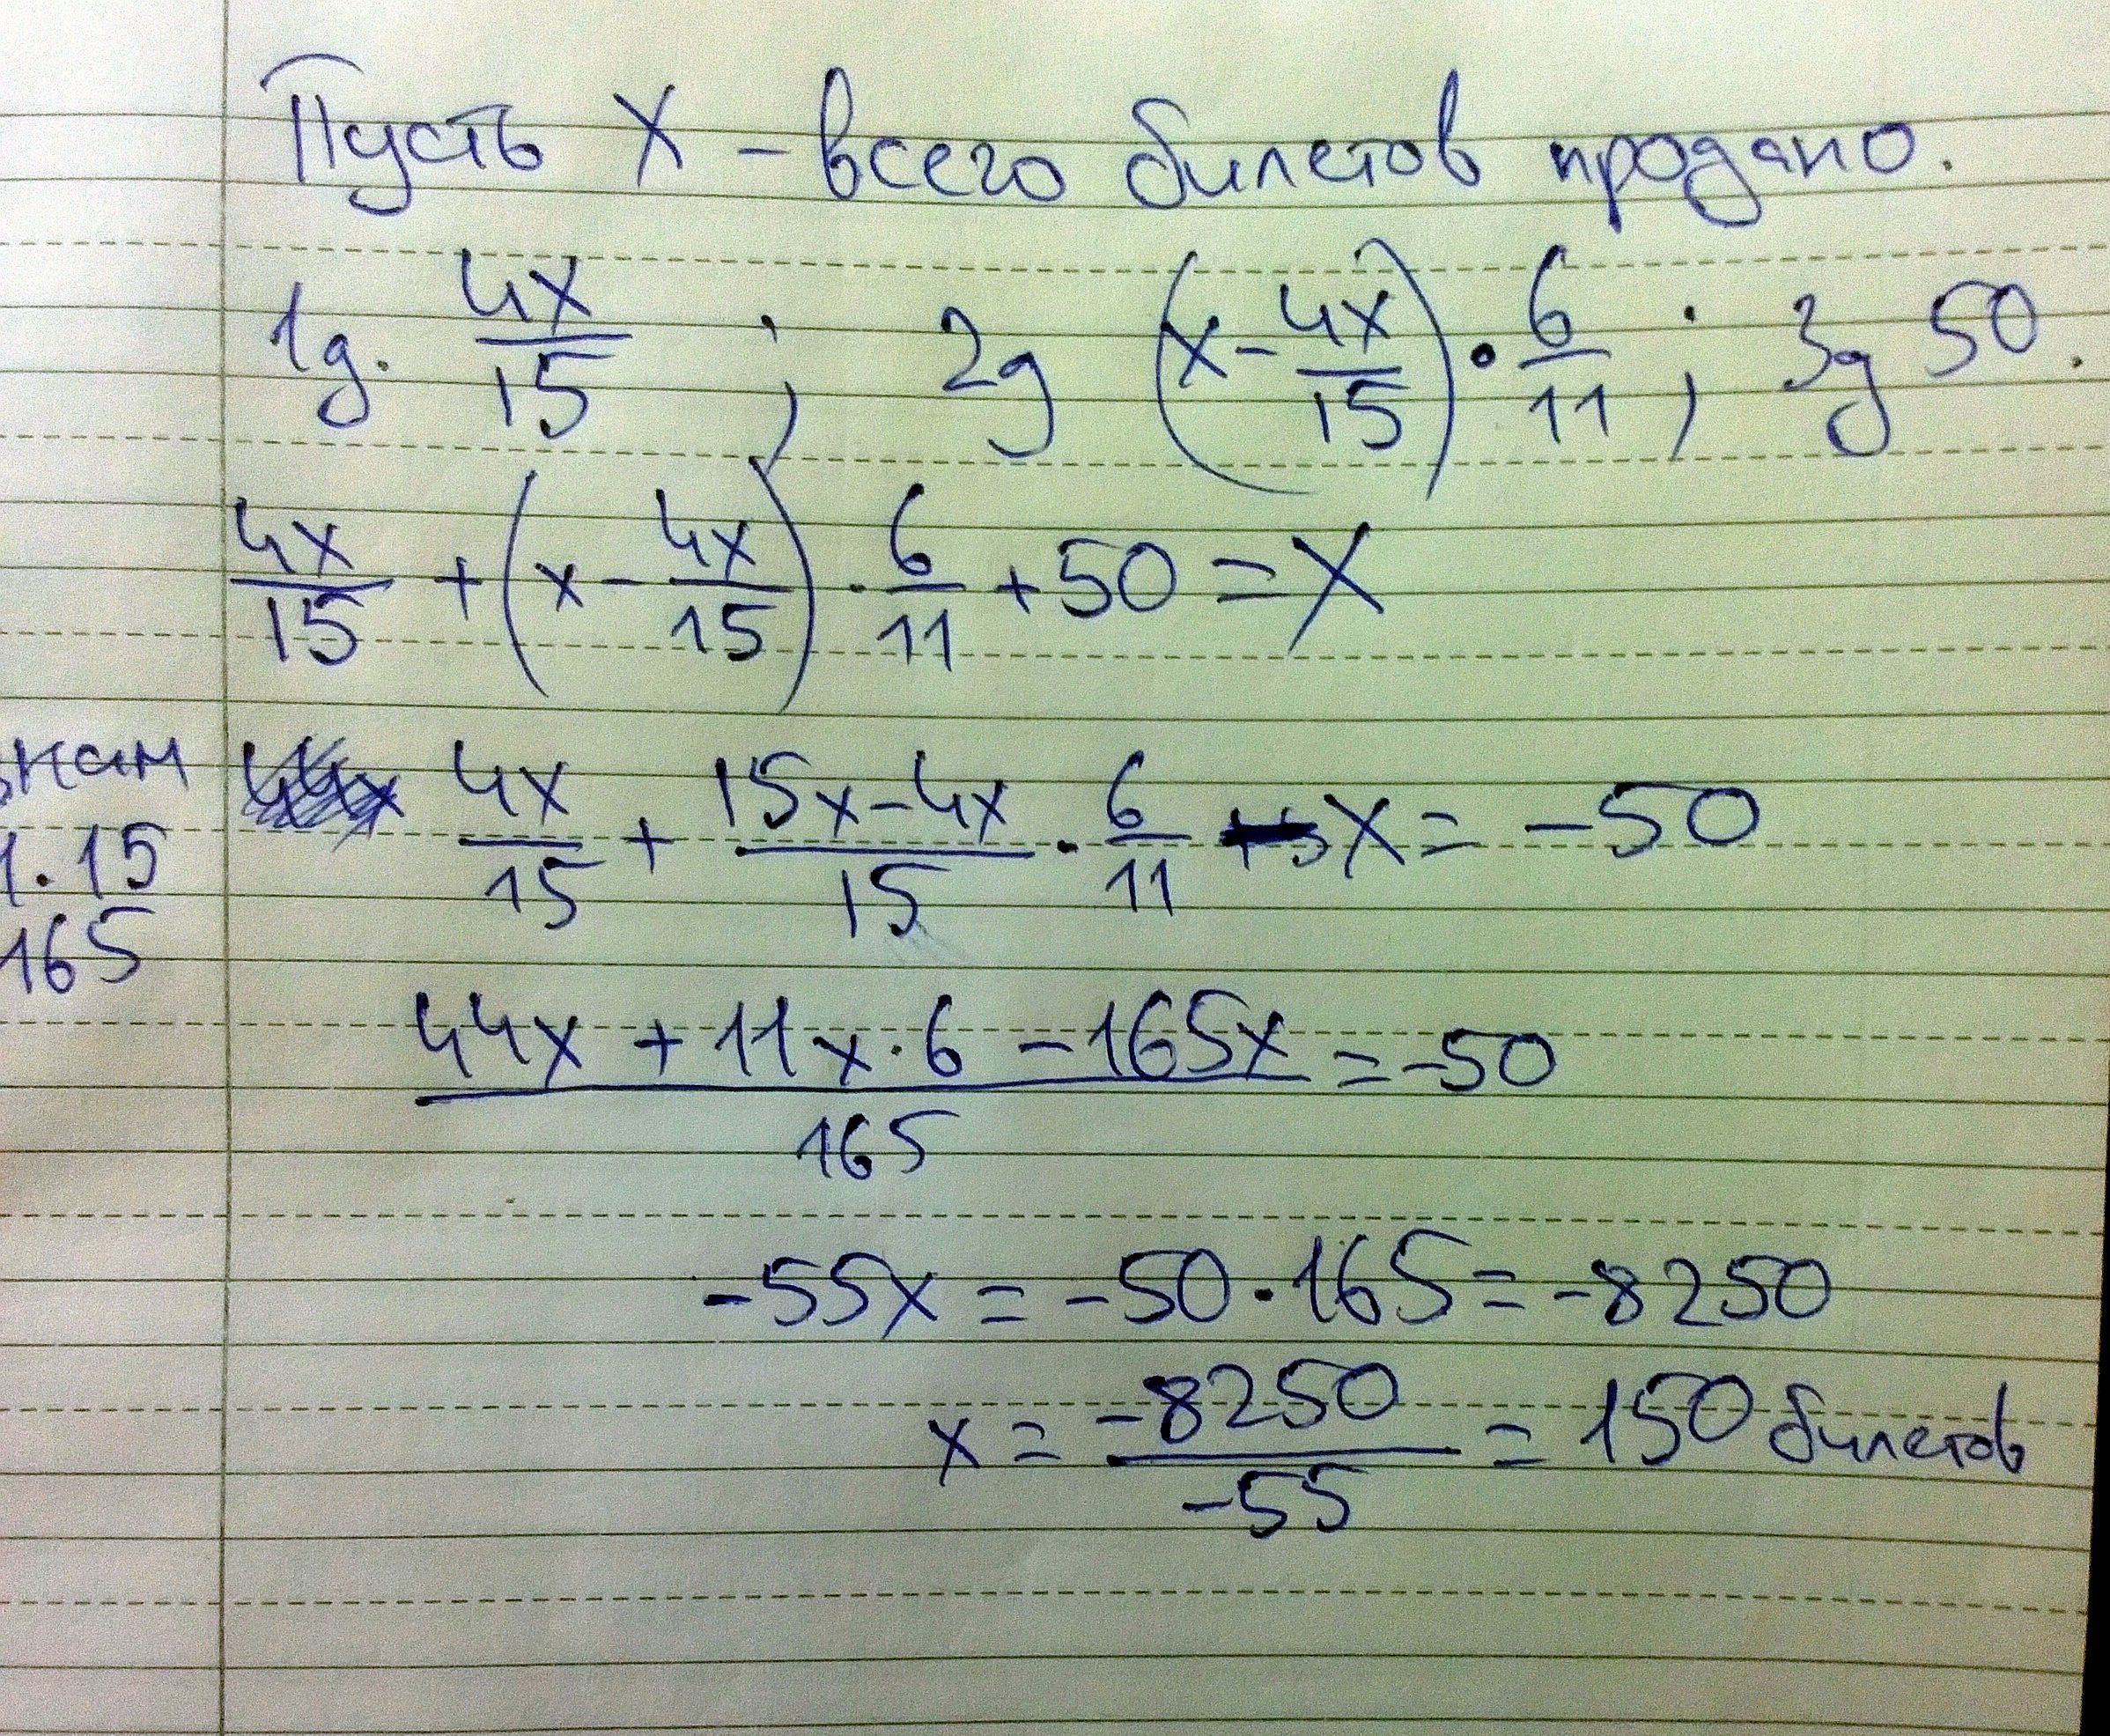 Пусть X – всего билетов продано.
1д. 4x/15 ; 2д (x - 4x/15) · 6/11 ; 3д 50.
4x/15 + (x - 4x/15) · 6/11 + 50 = X
4x/15 + (15x - 4x)/15 · 6/11 - X = -50
(44x + 11x · 6 - 165x)/165 = -50
-55x = -50 · 165 = -8250
x = -8250/-55 = 150 билетов
знам
1 · 15
165